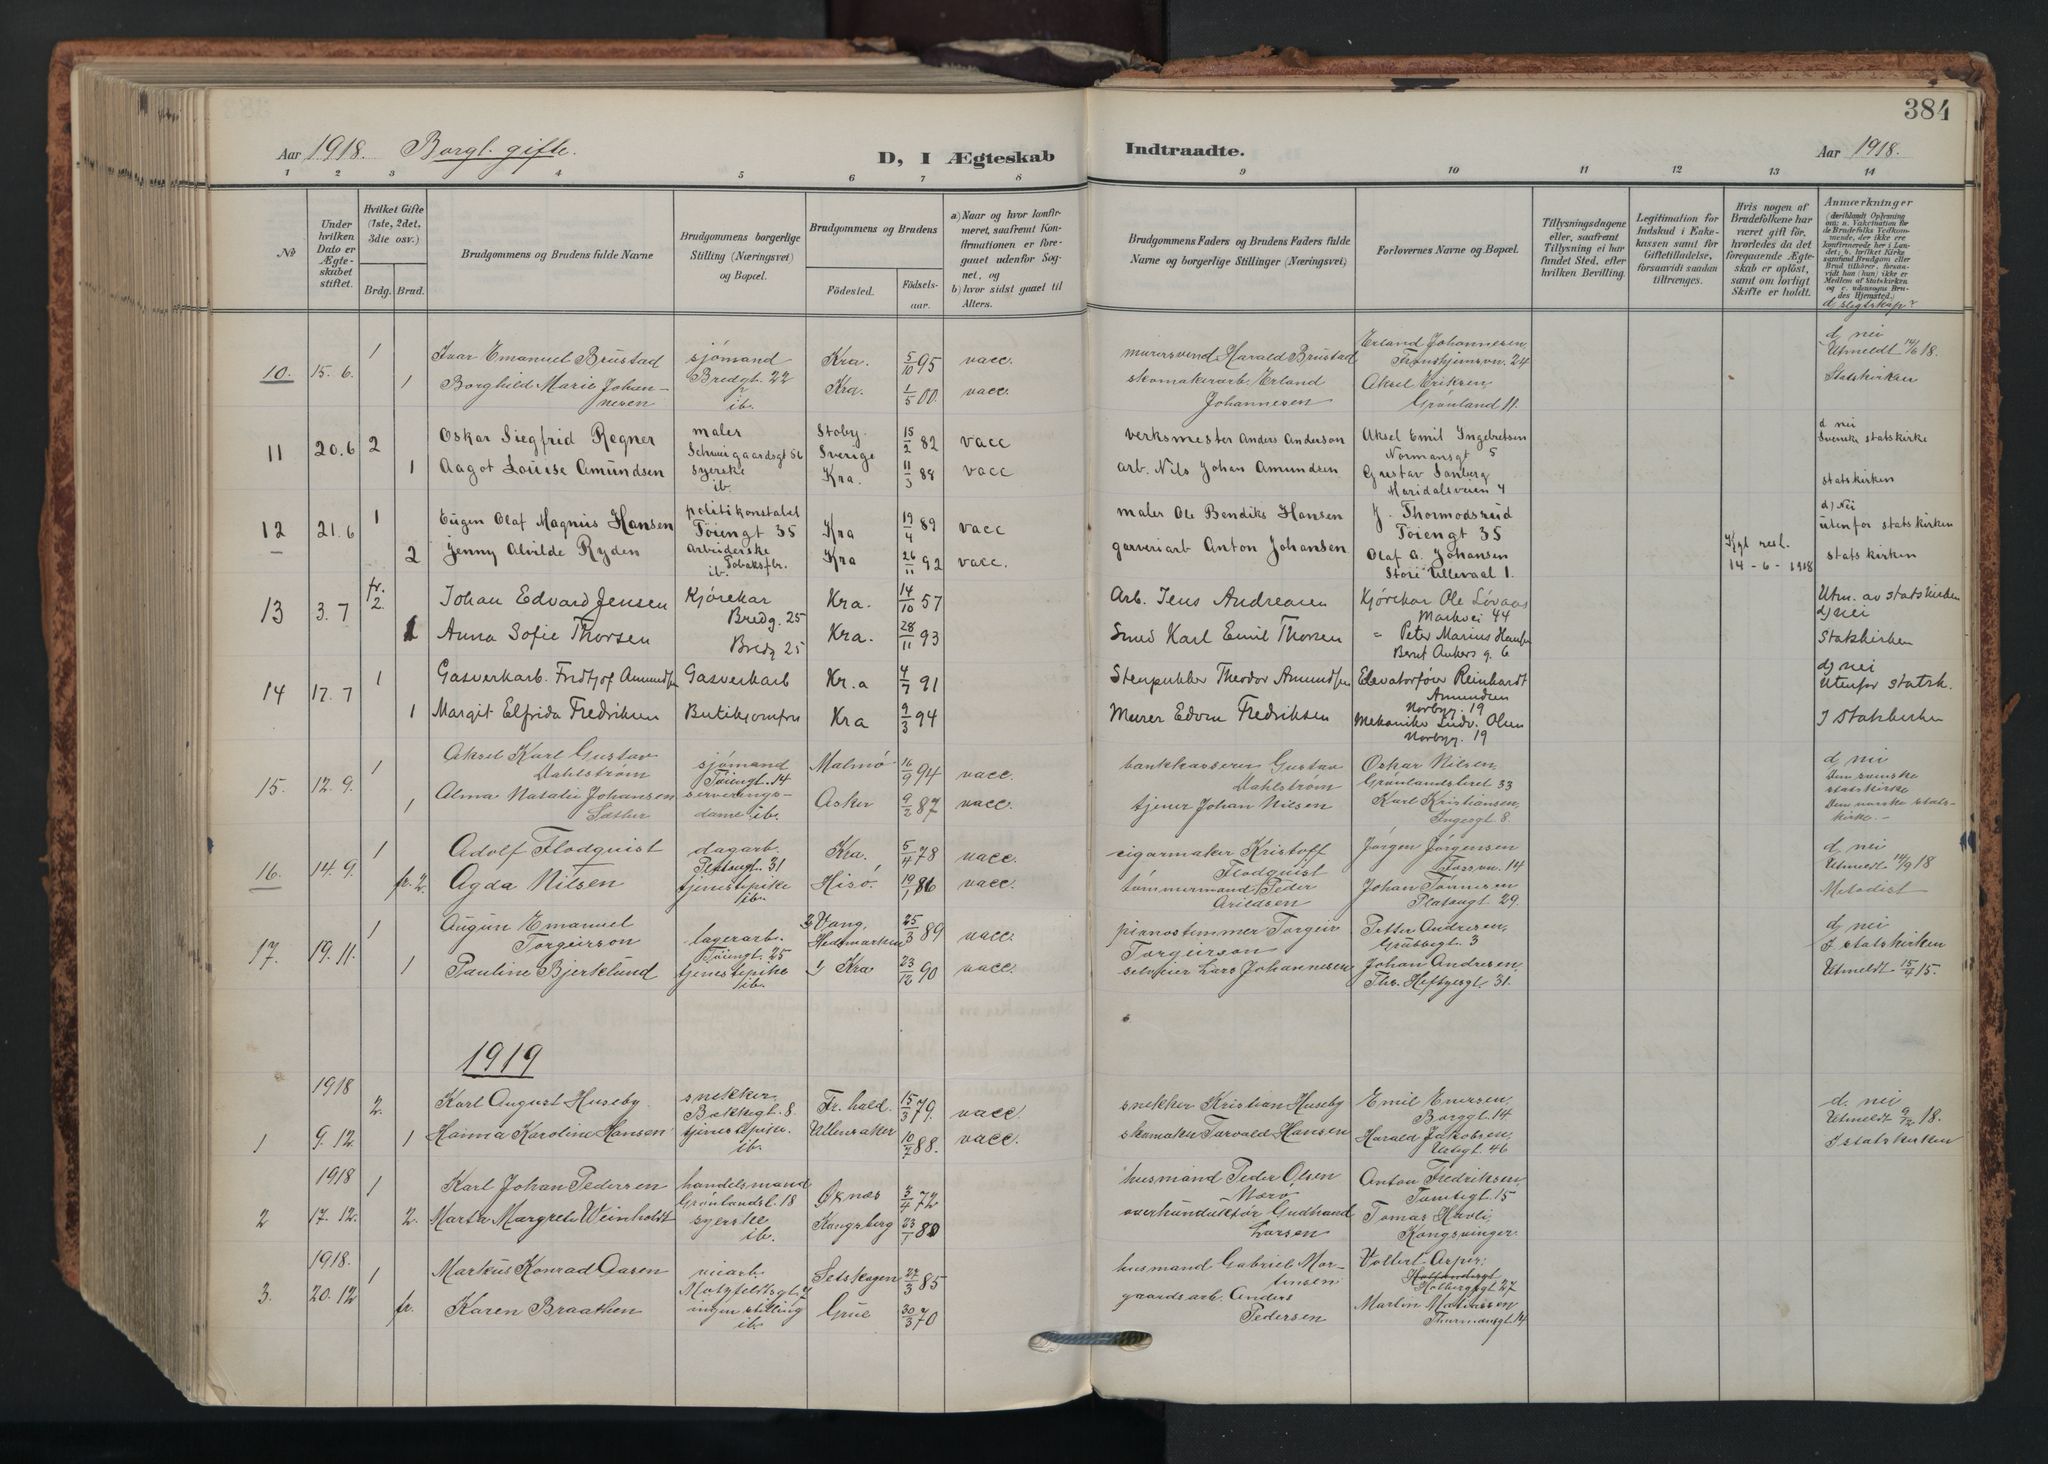 384
Aar 1918. Borgl. gifte. D, I Ægteskab Indtraadte. Aar 1918.
1 2 3 4 5 6 7 8 9 10 11 12 13 14
No
Under hvilken Dato er Ægteskabet stiftet.
Hvilket Gifte (1ste, 2det, 3die osv.)
Brdg. Brud.
Brudgommens og Brudens fulde Navne
Brudgommens borgerlige Stilling (Næringsvei) og Bopæl.
Brudgommens og Brudens
Fødested. Fødselsaar.
a) Naar og hvor konfirmeret, saafremt Konfirmationen er foregaaet udenfor Sognet, og
b) hvor sidst gaaet til Alters.
Brudgommens Faders og Brudens Faders fulde Navne og borgerlige Stillinger (Næringsvei)
Forlovernes Navne og Bopæl.
Tillysningsdagene eller, saafremt Tillysning ei har fundet Sted, efter hvilken Bevilling.
Legitimation for Indskud i Enkekassen samt for Giftetilladelse, forsaavidt saadan tiltrænges.
Hvis nogen af Brudefolkene har været gift før, hvorledes da det foregaaende Ægteskab er opløst, samt om lovligt Skifte er holdt.
Anmærkninger
d slegtskap?
10. 15. 6. 1 Ivar Emanuel Brustad sjómand Bredgt. 22 Kra. 5/10 95 vacc. murersvend Harald Brustad Erland Johannesen, Trondhjemsvn. 24 d, nei Utmeldt 14/6 18.
1 Borghild Marie Johannesen ib. Kra. 1/5 00. vacc. skomakerarb. Erland Johannesen Aksel Eriksen, Grønland 11. Statskirken
11 20.6 2 Oskar Siegfrid Regner maler Schweigaardsgt 56 Stoby, Sverige 15/2 82 vacc verksmester Anders Anderson Aksel Emil Ingebretsen Normansgt 5 d nei Svenska statskirke
1 Aagot Louise Amundsen syerske ib. Kra. 11/3 88 vacc arb. Nils Johan Amundsen Gustav Sanberg Maridalsveien 4 statskirken
12 21.6 1 Eugen Olaf Magnus Hansen politikonstabel Tóiengt 35 Kra 19/4 89 vacc maler Ole Bendiks Hansen J. Thormodsrud Tóiengt 35 d) Nei utenfor statskirken
2 Jenny Alvilde Ryden arbeiderske Tobaksfbr. ib. Kra 26/11 92 vacc. garveriarb Anton Johansen Olaf A. Johansen Store Ullevaal 1. Kgl resl. 14-6-1918 statskirken
13 3.7 fr. 2. Johan Edvard Jensen Kjórekar Bredg. 25 Kra. 14/10 57 Arb. Jens Andreasen Kjórekar Ole Lóvaas Markvei 44 Utm. av statskirken d) nei
1 Anna Sofie Thorsen Bredg 25 Kra. 28/11 93 Smed Karl Emil Thorsen " Peter Marius Hansen Bernt Ankers g. 6 Statskirken
14 17.7 1 Gasverkarb. Fridtjof Amundsen Gasverkarb Kr.a 4/7 91 Stenpukker Theodor Amundsen Elevatorfórer Reinhardt Amundsen Norbyg. 19 d) nei Utenfor statsk.
1 Margit Elfrida Fredriksen Butikjomfru Kra 9/3 94 Murer Edvin Fredriksen Mekaniker Ludv. Olsen Norbyg. 19 I Statskirken
15. 12. 9. 1 Aksel Karl Gustav Dahlstróm sjómand Tóiengt. 14 Malmó 16/9 94 vacc. bankkasserer Gustav Dahlstróm Oskar Nilsen, Grónlandsleret 33 d, nei Den svenske statskirke
1 Alma Natalie Johansen Sæther serveringsdame ib. Asker 9/2 87 vacc. tjener Johan Nilsen Karl Kristiansen, Ingesgt. 8. Den norske statskirke.
16. 14. 9. 1 Adolf Flodquist dagarb. Platougt. 31 Kra. 5/4 78 vacc. cigarmaker Kristoff Flodquist Jórgen Jórgensen Fossvn. 14 d, nei Utmeldt 14/9 18
fr. 2. Agda Nilsen tjenestepike ib. Hisó. 19/1 86 vacc. tómmermand Peder Arildsen Johan Tónnesen Platougt 29. Metodist
17. 19. 11. 1 Augun Emanuel Torgeirson lagerarb. Tóiengt. 25 Vang, Hedemarken 25/3 89 vacc. pianostemmer Torgeir Torgeirson Petter Andresen, Grubbegt. 3 d, nei I statskirken
1 Pauline Bjerklund tjenestepike ib. Kra 23/12 90 vacc. selveier Lars Johannesen Johan Andresen, Ths. Heftyesgt. 31. Utmeldt 15/9 15.
1919
1 1918 9. 12. 2. Karl August Huseby. snekker, Bakkegt. 8. Fr. hald. 15/3 79. vacc. snekker Kristian Huseby Emil Enersen, Borggt. 14 d. nei Utmeldt 9/12 18.
1 Hanna Karoline Hansen tjenestepike. ib. Ullensaker 10/7 88. vacc. skomaker Torvald Hansen Harald Jakobsen, Uelsgt. 46 I statskirken
2 1918 17. 12. 1 Karl Johan Pedersen handelsmand Grónlandsl. 18 Óksnes 3/4 72 husmand Peder Olsen Anton Fredriksen, Tomtegt. 15
2. Marta Margrete Weinholdt syerske ib. Kongsberg 23/1 80 overkonduktór Gudbrand Larsen Tomas Havli, Kongsvinger.
3. 1918. 20. 12 1 Markus Konrad Aasen veiarb. Motzfeldtsgt 7 Setskogen 22/3 85 husmand Gabriel Mortensen Volbert Asper. Hollendergt Holbergsgt 27
fr. Karen Braathen ingen stilling ib. Grue 30/3 70 gaardsarb. Anders Pedersen Martin Matiassen Thurmannsgt. 14